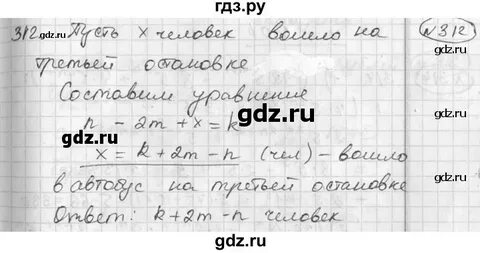 гдз.ру
312. Пусть x человек вошло на №312
третьей остановке
gdz.ru gdz.ru
Составим уравнение
gdz.ru
n - 2m + x = k
gdz.ru
x = k + 2m - n (чел) - вошло
в автобус на третьей остановке
gdz.ru gdz.ru
Ответ: k + 2m - n человек
gdz.ru